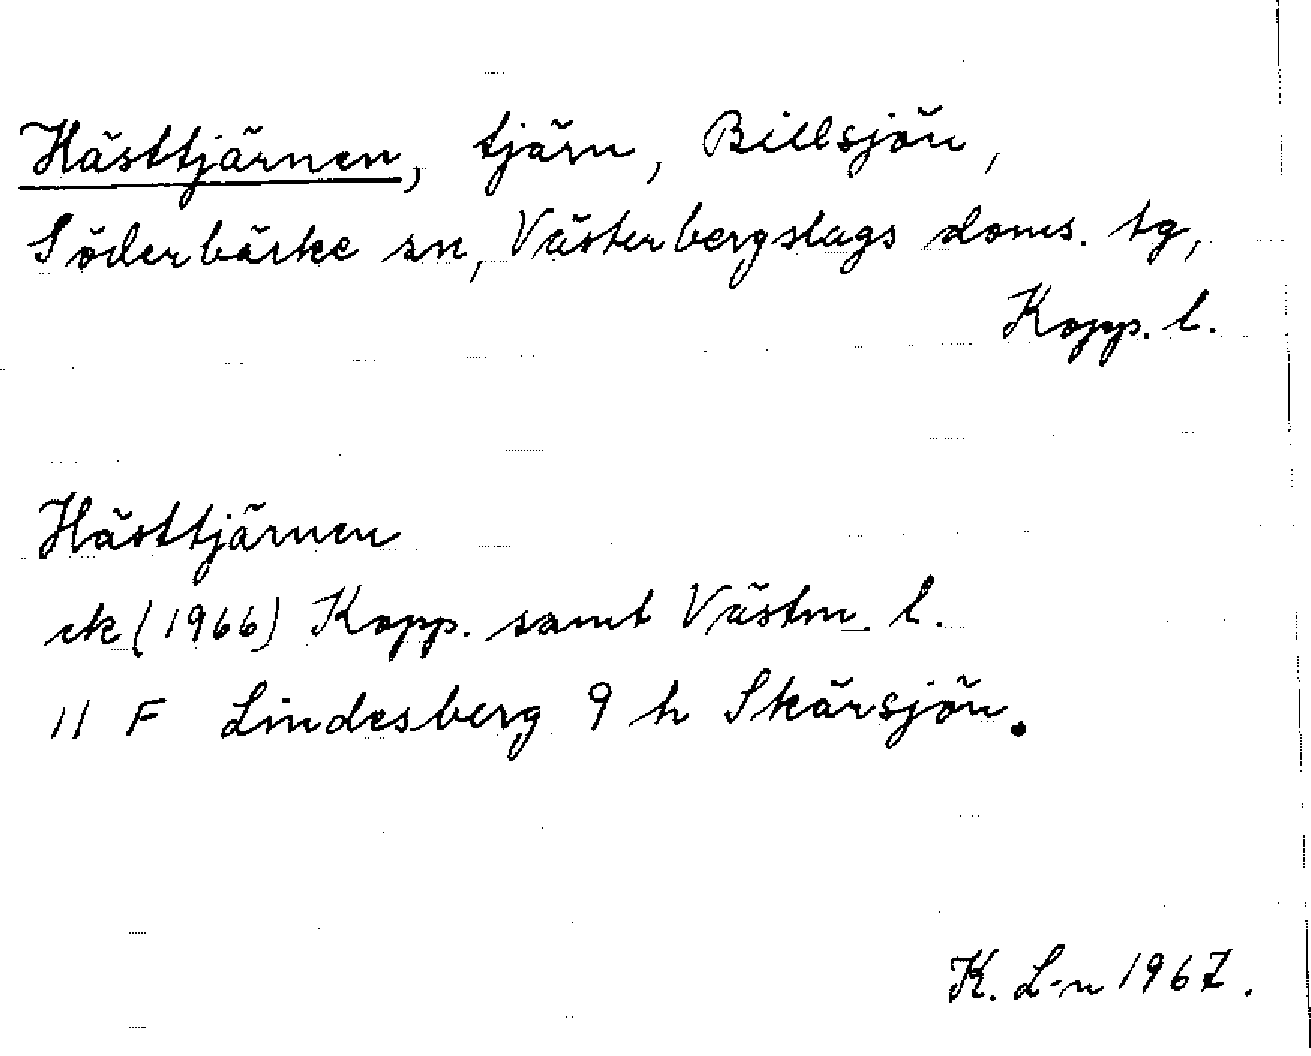 Hästtjärnen, tjärn, Billsjön,
Söderbärke sn, Västerbergslags doms. tg,
Kopp. l.
Hästtjärnen
ek (1966) Kopp. samt Västm. l.
11 F Lindesberg 9 h Skärsjön.
K. L-n 1967.